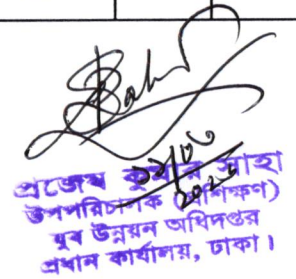 প্রজেষ কুমার সাহা
উপপরিচালক (প্রশিক্ষণ)
যুব উন্নয়ন অধিদপ্তর
প্রধান কার্যালয়, ঢাকা।